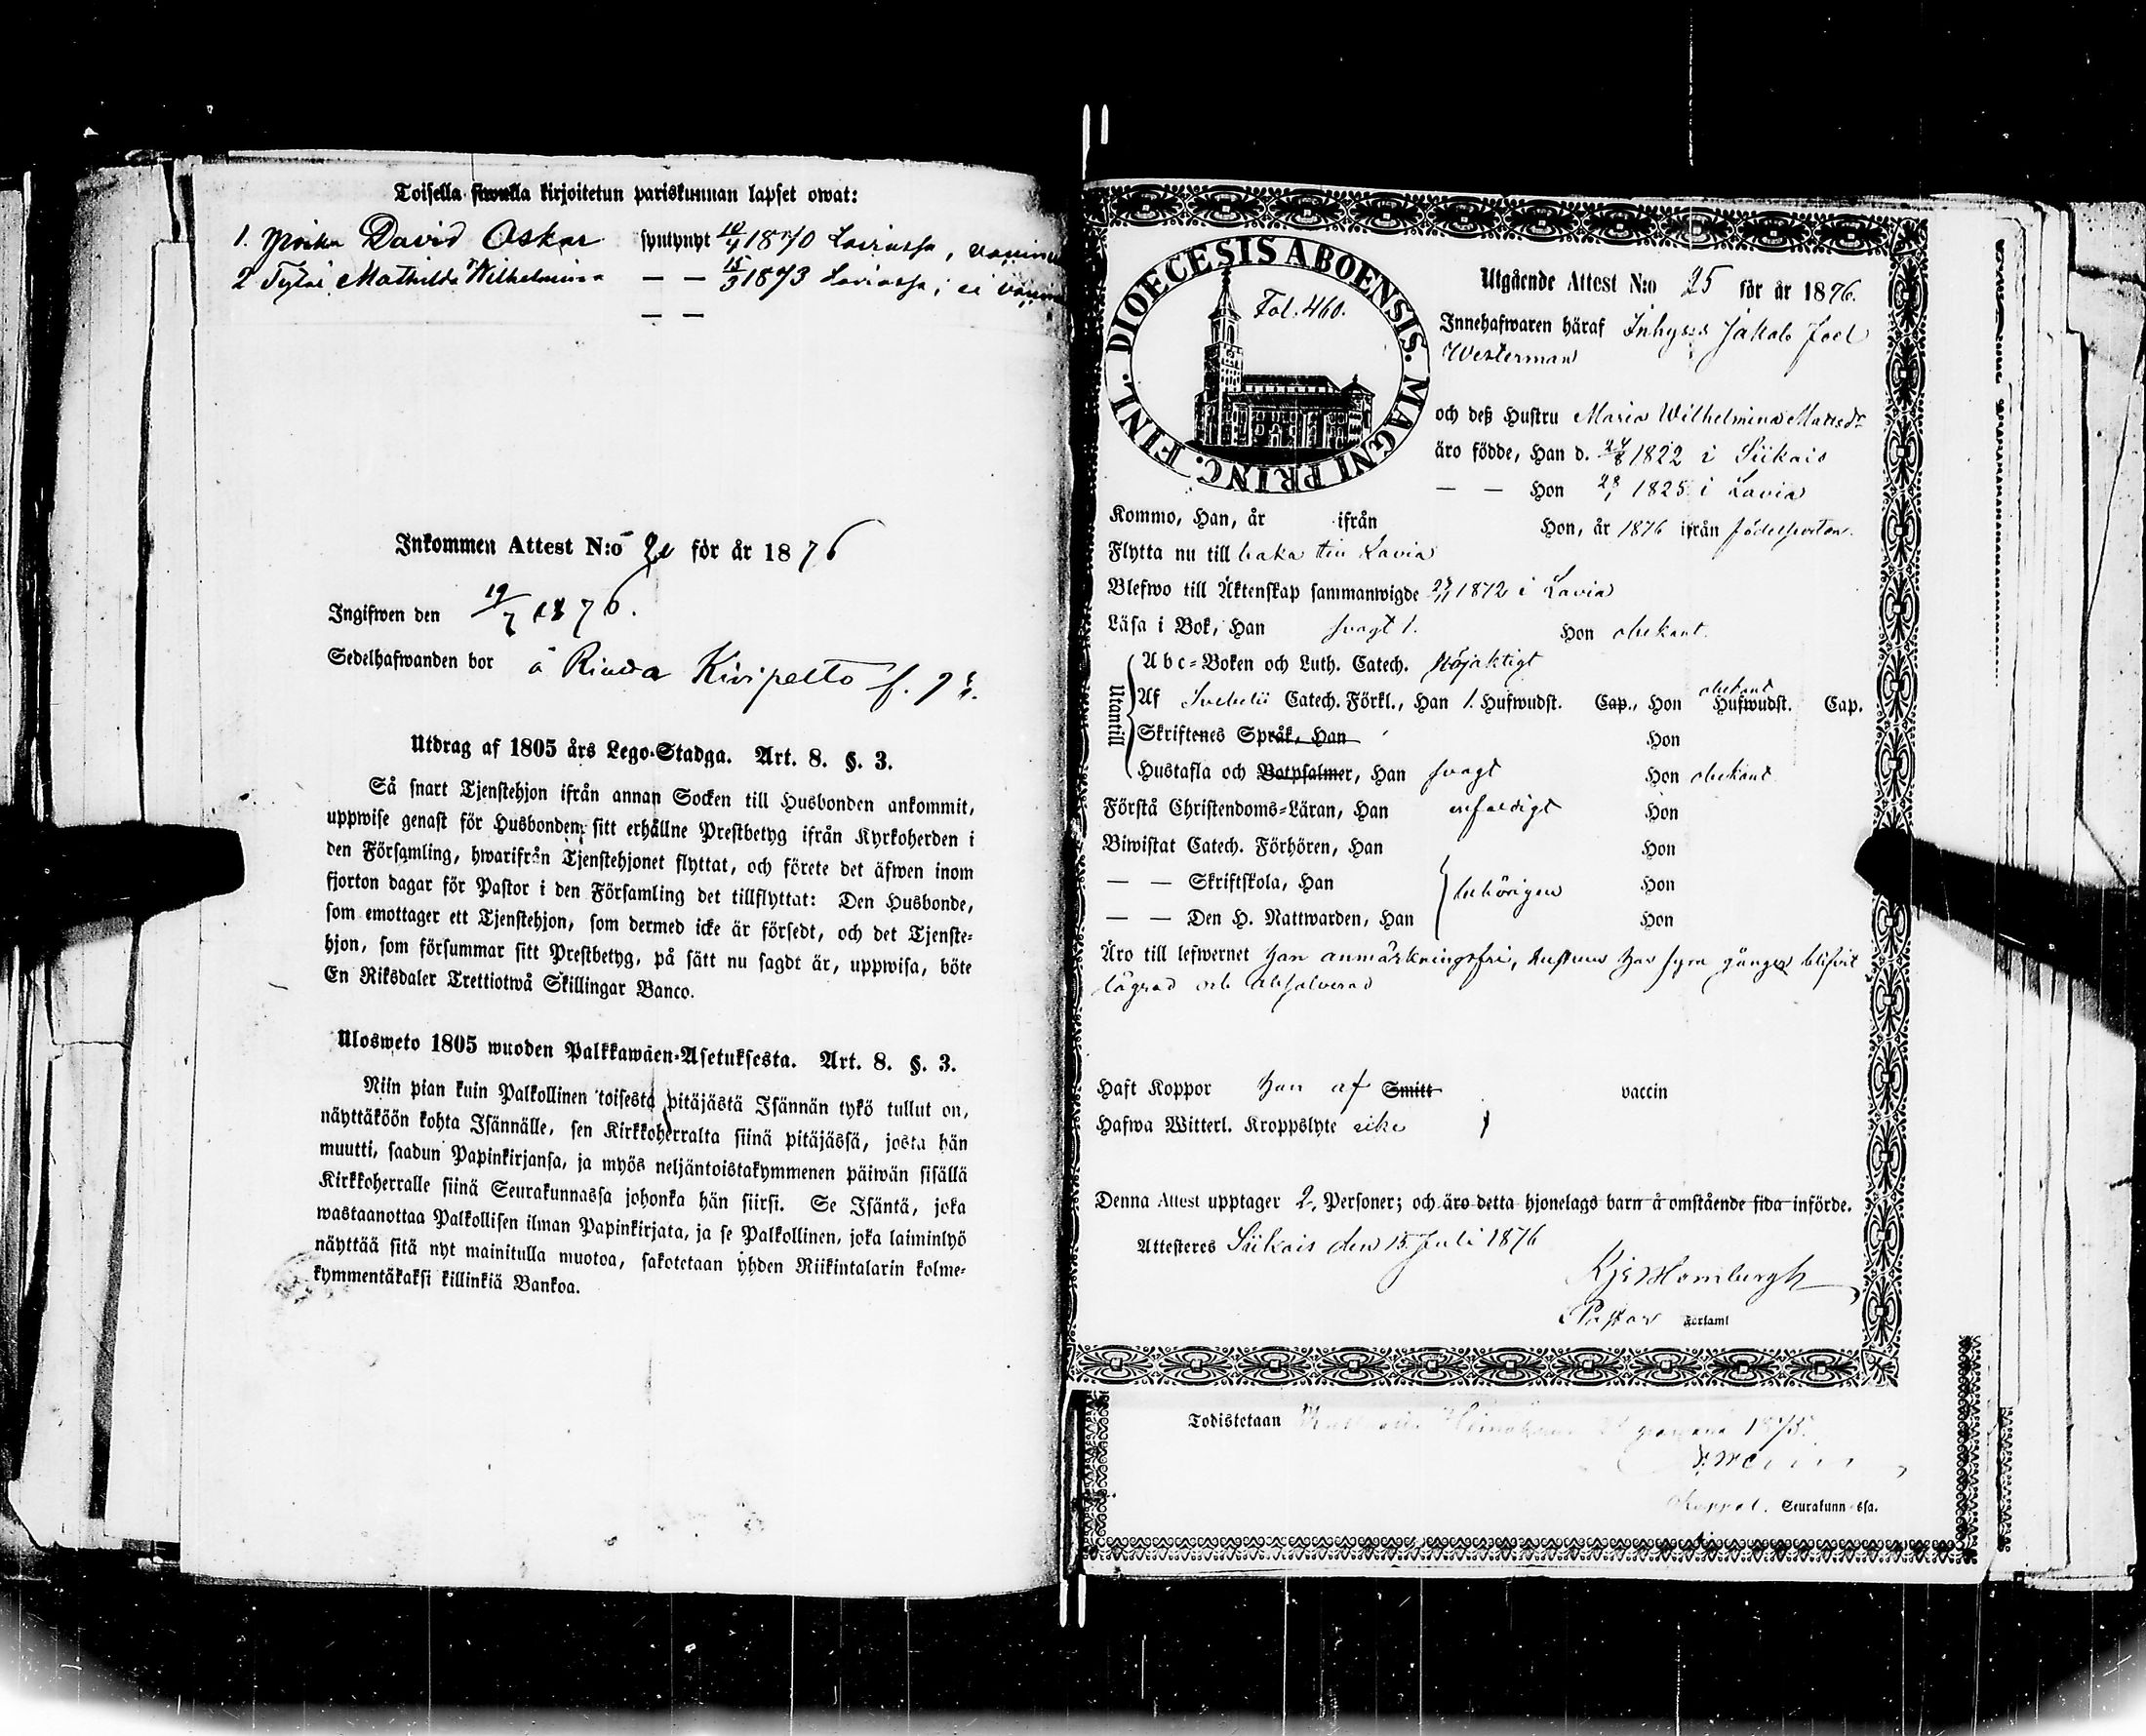 Toisella siwulla kirjoitetun pariskunnan lapset owat:
1. Poika David Oskar syntynyt 10/4 1870 Laviassa,
2 Tytär Mathilda Wilhelmina — — 15/3 1873 Laviassa, ei
— —
Inkommen Attest N:o 20 för år 1876
Ingifwen den 19/7 1876.
Sedelhafwanden bor å Riuda Kivipelto f.
Utdrag af 1805 års Lego-Stadga. Art. 8. §. 3.
Så snart Tjenstehjon ifrån annan Socken till Husbonden ankommit,
uppwise genast för Husbonden sitt erhållne Prestbetyg ifrån Kyrkoherden i
den Församling, hwarifrån Tjenstehjonet flyttat, och förete det äfwen inom
fjorton dagar för Pastor i den Församling det tillflyttat: Den Husbonde,
som emottager ett Tjenstehjon, som dermed icke är försedt, och det Tjenste-
hjon, som försummar sitt Prestbetyg, på sätt nu sagdt är, uppwisa, böte
En Riksdaler Trettiotwå Skillingar Banco.
Ulosweto 1805 wuoden Palkkawäen-Asetuksesta. Art. 8. §. 3.
Niin pian kuin Palkollinen toisesta pitäjästä Isännän tykö tullut on,
näyttäköön kohta Isännälle, sen Kirkkoherralta siinä pitäjässä, josta hän
muutti, saadun Papinkirjansa, ja myös neljäntoistakymmenen päiwän sisällä
Kirkkoherralle siinä Seurakunnassa johonka hän siirsi. Se Isäntä, joka
wastaanottaa Palkollisen ilman Papinkirjata, ja se Palkollinen, joka laiminlyö
näyttää sitä nyt mainitulla muotoa, sakotetaan yhden Riikintalarin kolme-
kymmentäkaksi killinkiä Bankoa.
DIOECESIS ABOENSIS. MAGNI PRINC. FINL.
Fol. 460.
Utgående Attest N:o 25 för år 1876.
Innehafwaren häraf Inhyses Jakob Joel
Westerman
och deß Hustru Maria Wilhelmina Matsdr
äro födde, Han d. 24/8 1822 i Siikais
— — Hon 28/1 1825 i Lavia
Kommo, Han, år ifrån Hon, år 1876 ifrån födelseorten.
Flytta nu till baka till Lavia
Blefwo till Äktenskap sammanwigde 1872 i Lavia
Läsa i Bok, Han svagt 1. Hon obekant.
Utantill
Abc-Boken och Luth. Catech. nöjaktigt
Af Svebelii Catech. Förkl., Han 1. Hufwudst. Cap., Hon obekant Hufwudst. Cap.
Skriftenes Språk, Han Hon
Hustafla och Botpsalmer, Han svagt Hon obekant
Förstå Christendoms-Läran, Han enfaldigt Hon
Biwistat Catech. Förhören, Han Hon
— — Skriftskola, Han behörigen Hon
— — Den H. Nattwarden, Han Hon
Äro till lefwernet han anmärkningsfri, hustrun har fyra gånger blifvit
lägrad och absolverad
Haft Koppor han af Smitt vaccin
Hafwa Witterl. Kroppslyte icke
Denna Attest upptager 2. Personer; och äro detta hjonelags barn å omstående sida införde.
Attesteres Siikais den 15 Juli 1876
Mombergh
Pastor Församl
Todistetaan
Kappal. Seurakunnassa.